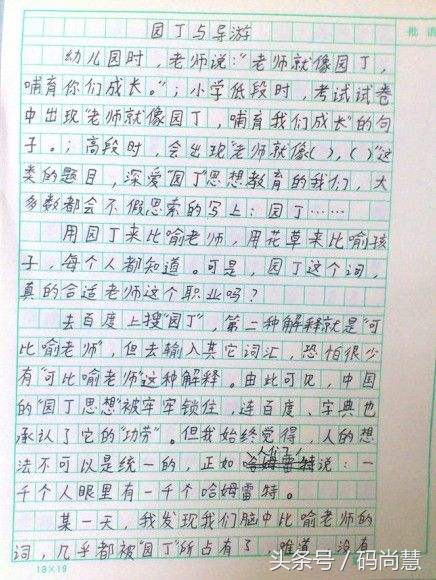 园丁与导游
幼儿园时，老师说："老师就像园丁，
哺育你们成长。"；小学低段时，考试试卷
中出现"老师就像园丁，哺育我们成长"的句
子。；高段时，会出现"老师就像( )，( )"这
类的题目，深爱"园丁"思想教育的我们，大
多数都会不假思索的写上：园丁……
用园丁来比喻老师，用花草来比喻孩
子，每个人都知道。可是，园丁这个词，
真的合适老师这个职业吗？
去百度上搜"园丁"，第二种解释就是"可
比喻老师"，但去输入其它词汇，恐怕很少
有"可比喻老师"这种解释。由此可见，中国
的"园丁思想"被牢牢锁住，连百度、字典也
承认了它的"功劳"。但我始终觉得，人的想
法不可以是统一的，正如人们说：一
千个人眼里有一千个哈姆雷特。
某一天，我发现我们脑中比喻老师的
词，几乎都被"园丁"所占有了，难道，没有
18×19
批
头条号／码尚慧